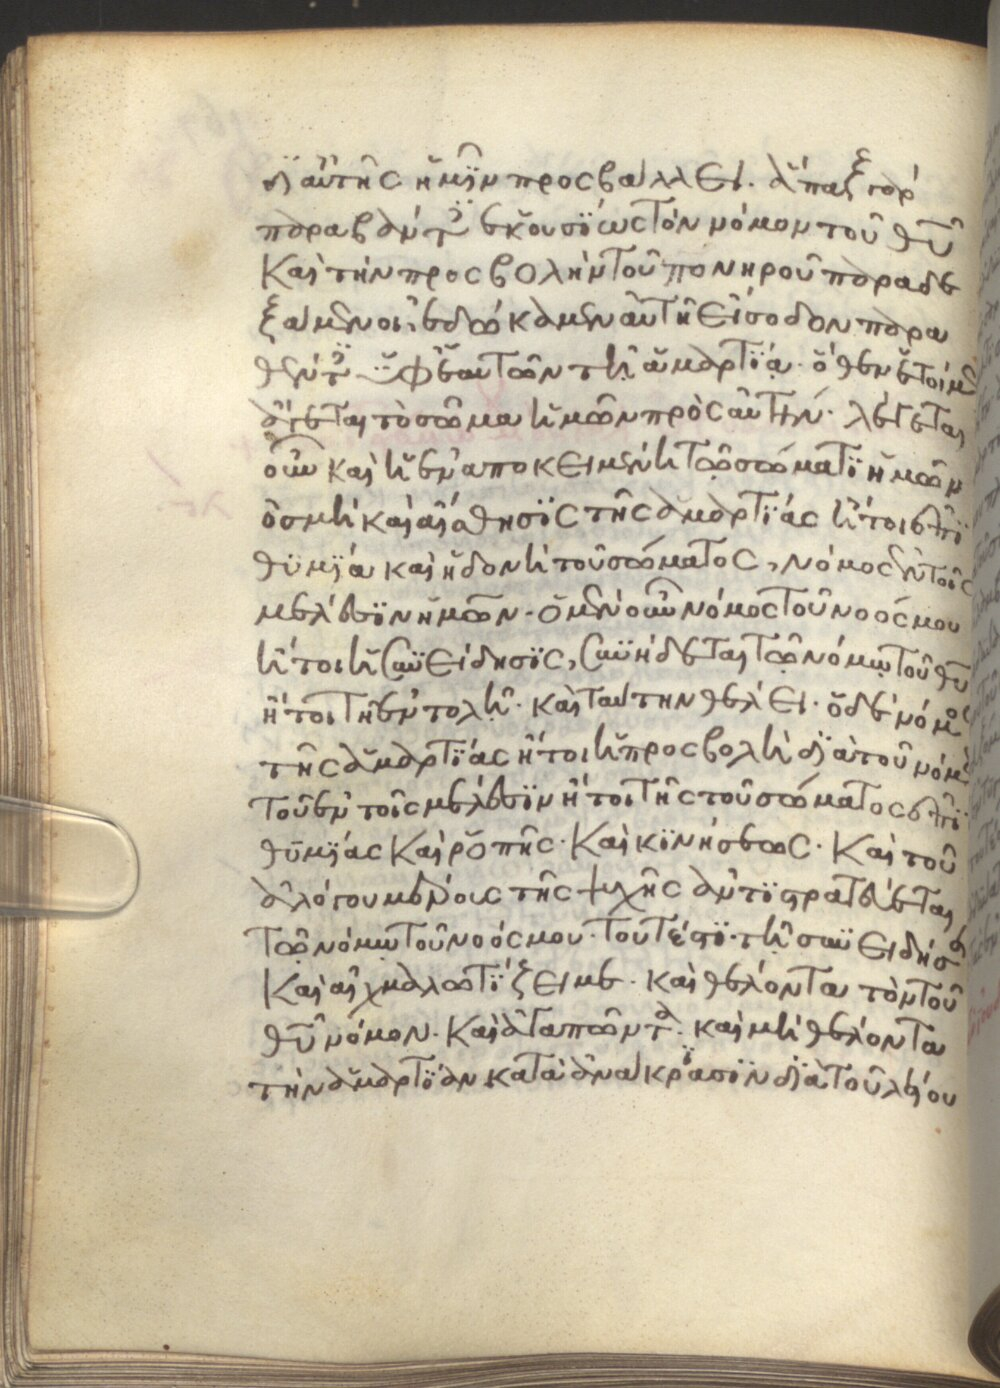 δι αὐτῆς ἡμῖν προσβάλλει. ἅπαξ γὰρ
παραβάντες ἑκουσίως τὸν νόμον τοῦ θυ
καὶ τὴν προσβολὴν τοῦ πονηροῦ παραδε
ξάμενοι, ἐδώκαμεν αὐτῇ εἴσοδον πρα
θέντες ὑφ' ἑαυτῶν τῇ ἁμαρτίᾳ. ὅθεν ἑτοίμως
ἄγεται τὸ σῶμα ἡμῶν πρὸς αὐτήν. λέγεται
οὖν καὶ ἡ ἐναποκειμένη τῷ σώματι ἡμῶν
ὀσμὴ καὶ αἴσθησις τῆς ἁμαρτίας ἤτοι ἐπι
θυμία καὶ ἡδονὴ τοῦ σώματος, νόμος ἐν τοῖς
μέλεσιν ἡμῶν. ὁ μὲν οὖν νόμος τοῦ νοός μου
ἤτοι ἡ συνείδησις, συνήδεται τῷ νόμῳ τοῦ θυ
ἤτοι τῇ ἐντολῇ. καὶ ταύτην θέλει. ὁ δὲ νόμος
τῆς ἁμαρτίας ἤτοι ἡ προσβολὴ διὰ τοῦ νόμου
τοῦ ἐν τοῖς μέλεσιν ἤτοι τῆς τοῦ σώματος ἐπι
θυμίας καὶ ῥοπῆς. καὶ κινήσεως. καὶ τοῦ
ἀλόγου μέρους τῆς ψυχῆς ἀντιστρατεύεται
τῷ νόμῳ τοῦ νοός μου. τουτέστι. τῇ συνειδήσει
καὶ αἰχμαλωτίζει με. καὶ θέλοντα τὸν τοῦ
θυ νόμον. καὶ ἀγαπῶντα. καὶ μὴ θέλοντα
τὴν ἁμαρτίαν κατὰ ἀνάκρασιν διὰ τοῦ λείου